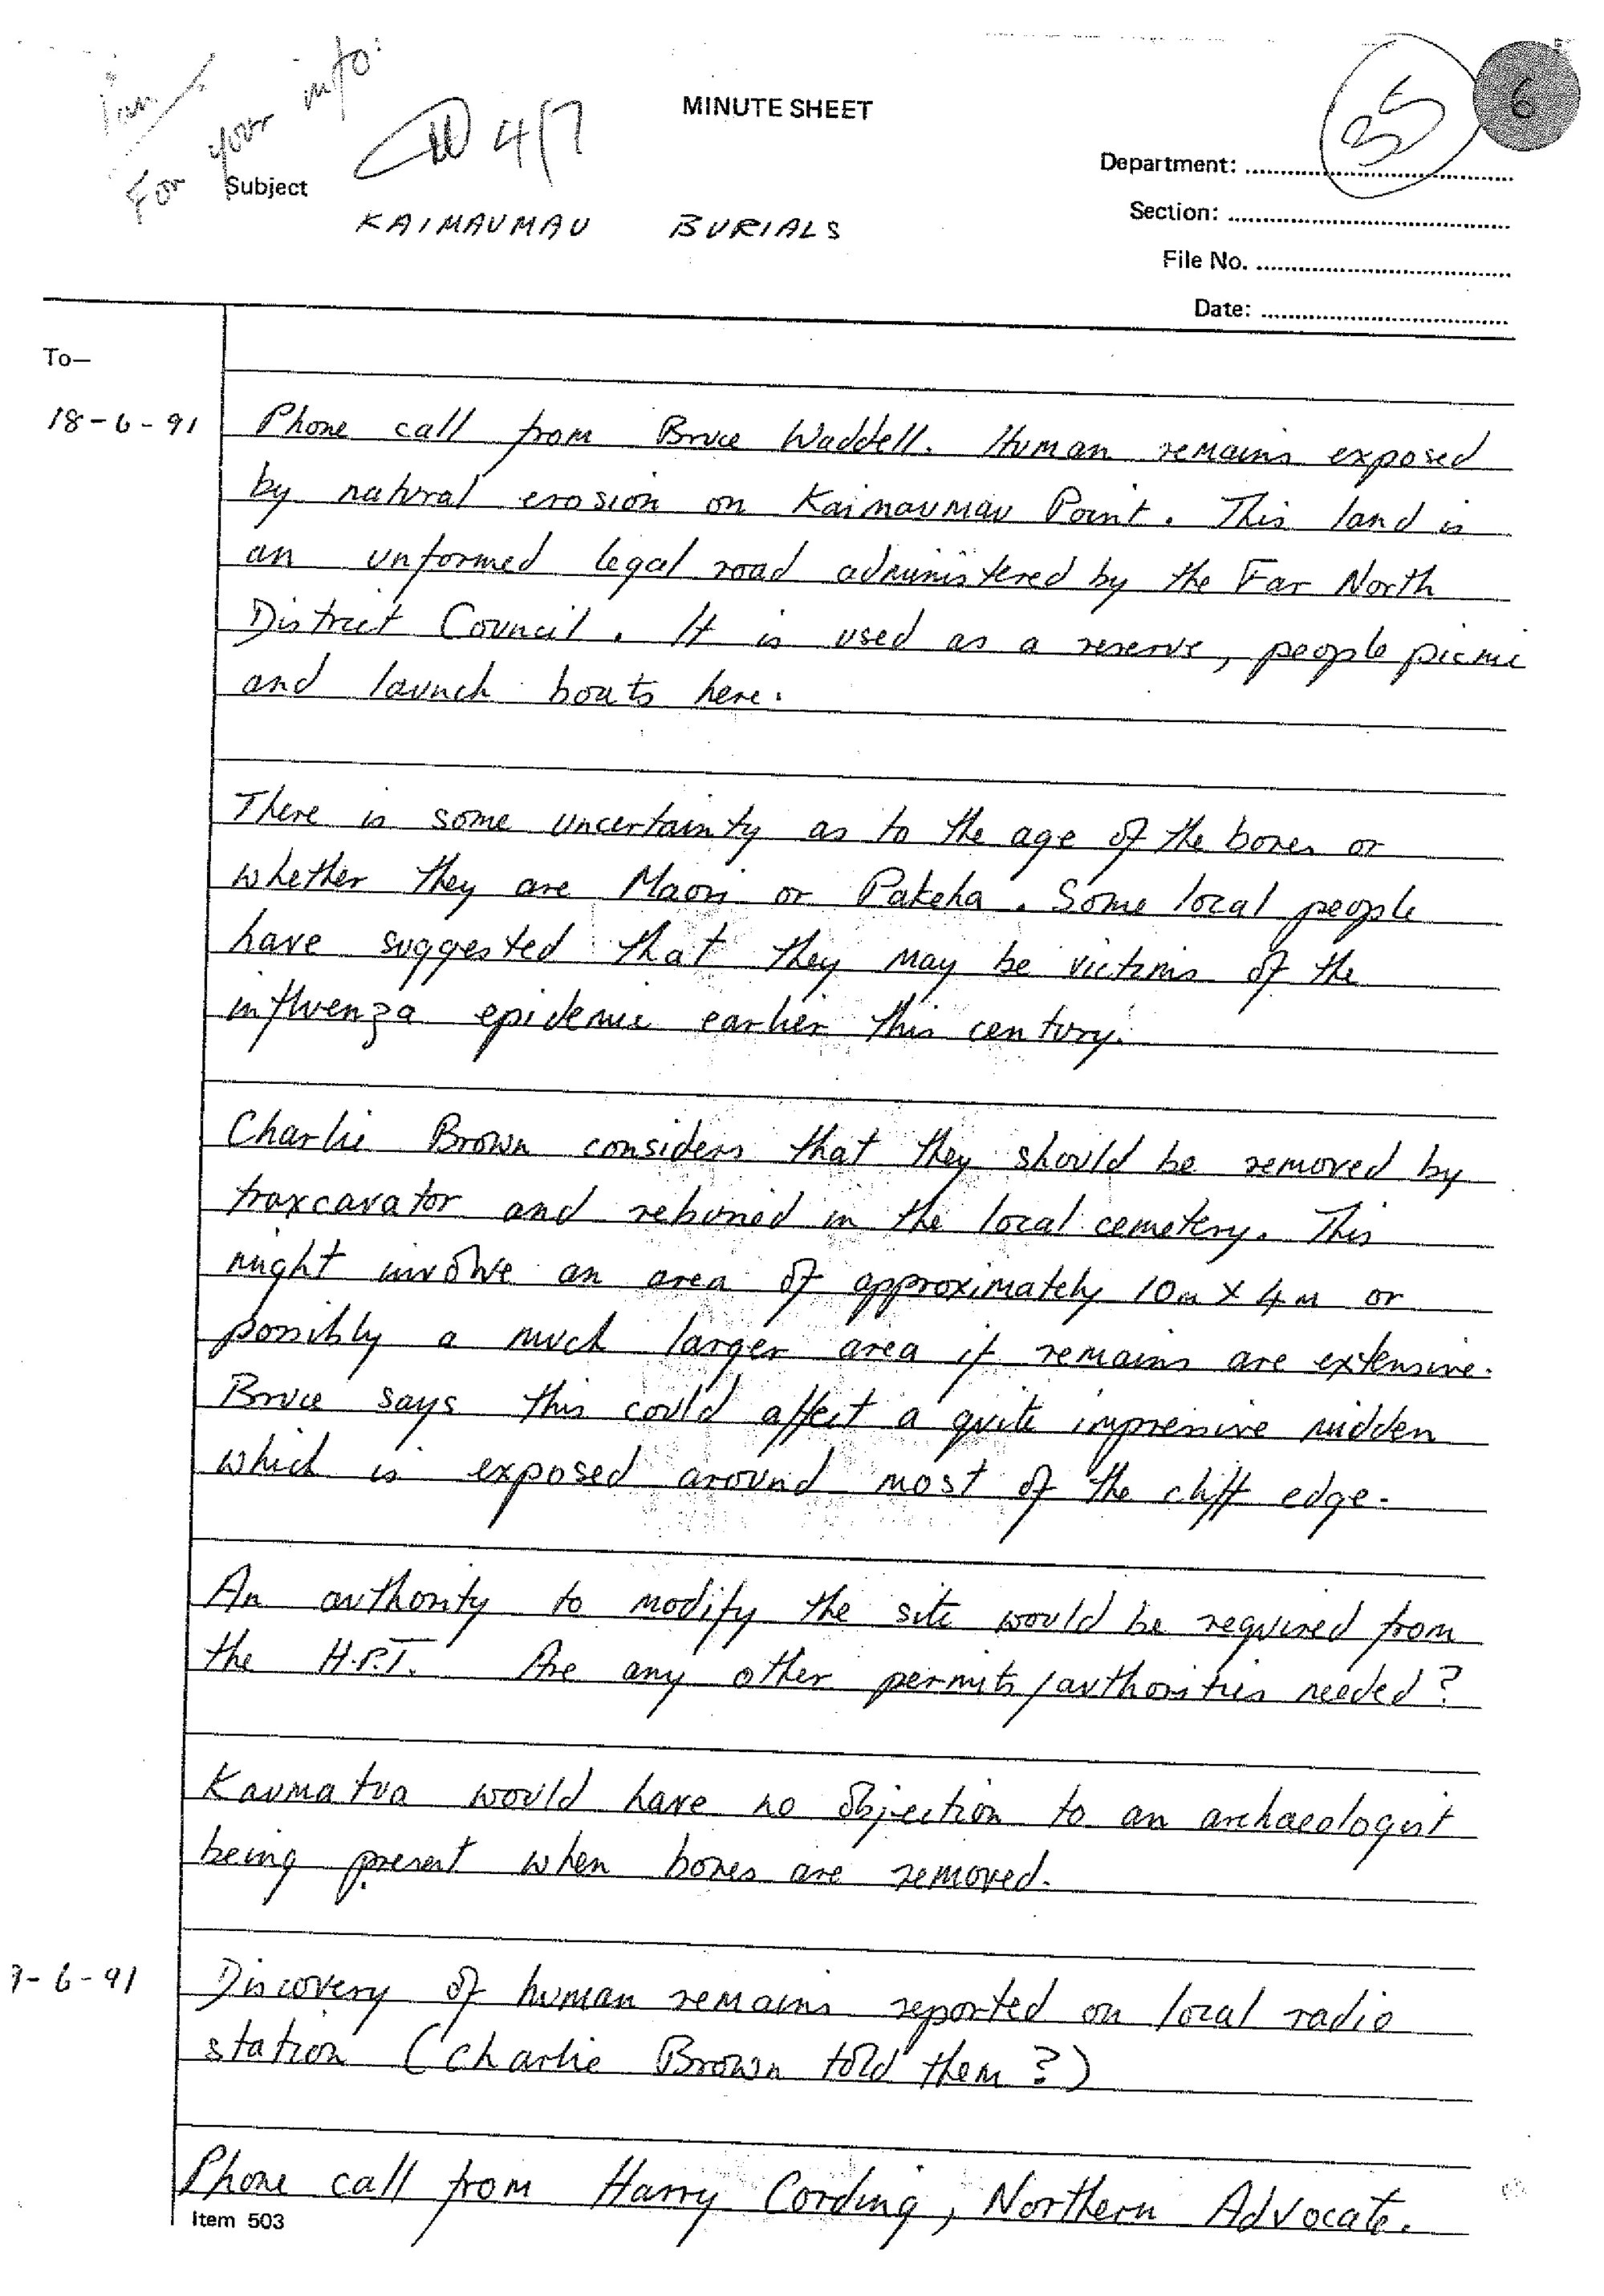 Ian
For your info:
4/7
MINUTE SHEET
35
6
Department:
Subject
KAIMAUMAU BURIALS
Section:
File No.
Date:
To—
18-6-91
Phone call from Bruce Waddell. Human remains exposed
by natural erosion on Kaimaumau Point. This land is
an unformed legal road administered by the Far North
District Council. It is used as a reserve, people picnic
and launch boats here.
There is some uncertainty as to the age of the bones or
whether they are Maori or Pakeha. Some local people
have suggested that they may be victims of the
influenza epidemic earlier this century.
Charlie Brown considers that they should be removed by
traxcavator and reburied in the local cemetery. This
might involve an area of approximately 10m x 4m or
possibly a much larger area if remains are extensive.
Bruce says this could affect a quite impressive midden
which is exposed around most of the cliff edge.
An authority to modify the site would be required from
the H.P.T. Are any other permits/authorities needed?
Kaumatua would have no objection to an archaeologist
being present when bones are removed.
9-6-91
Discovery of human remains reported on local radio
station (Charlie Brown told them?)
Phone call from Harry Cording, Northern Advocate.
Item 503